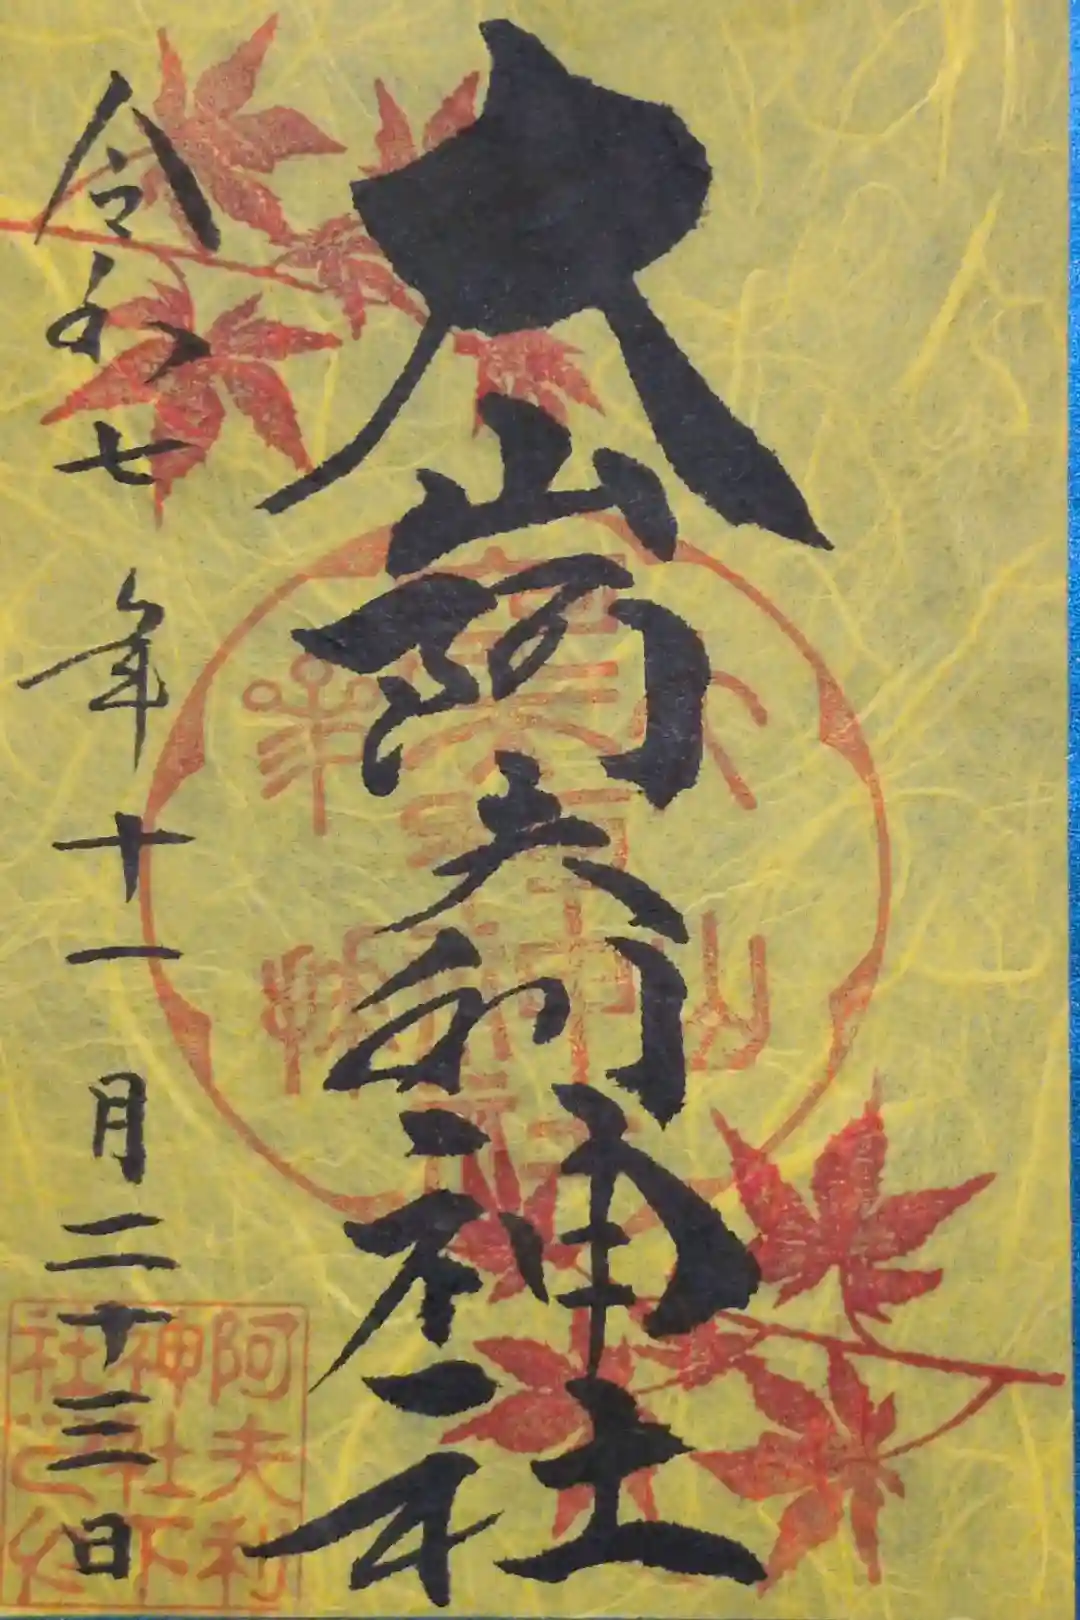 大山阿夫利神社
令和七年十一月二十三日
阿夫利
神社下
社之印